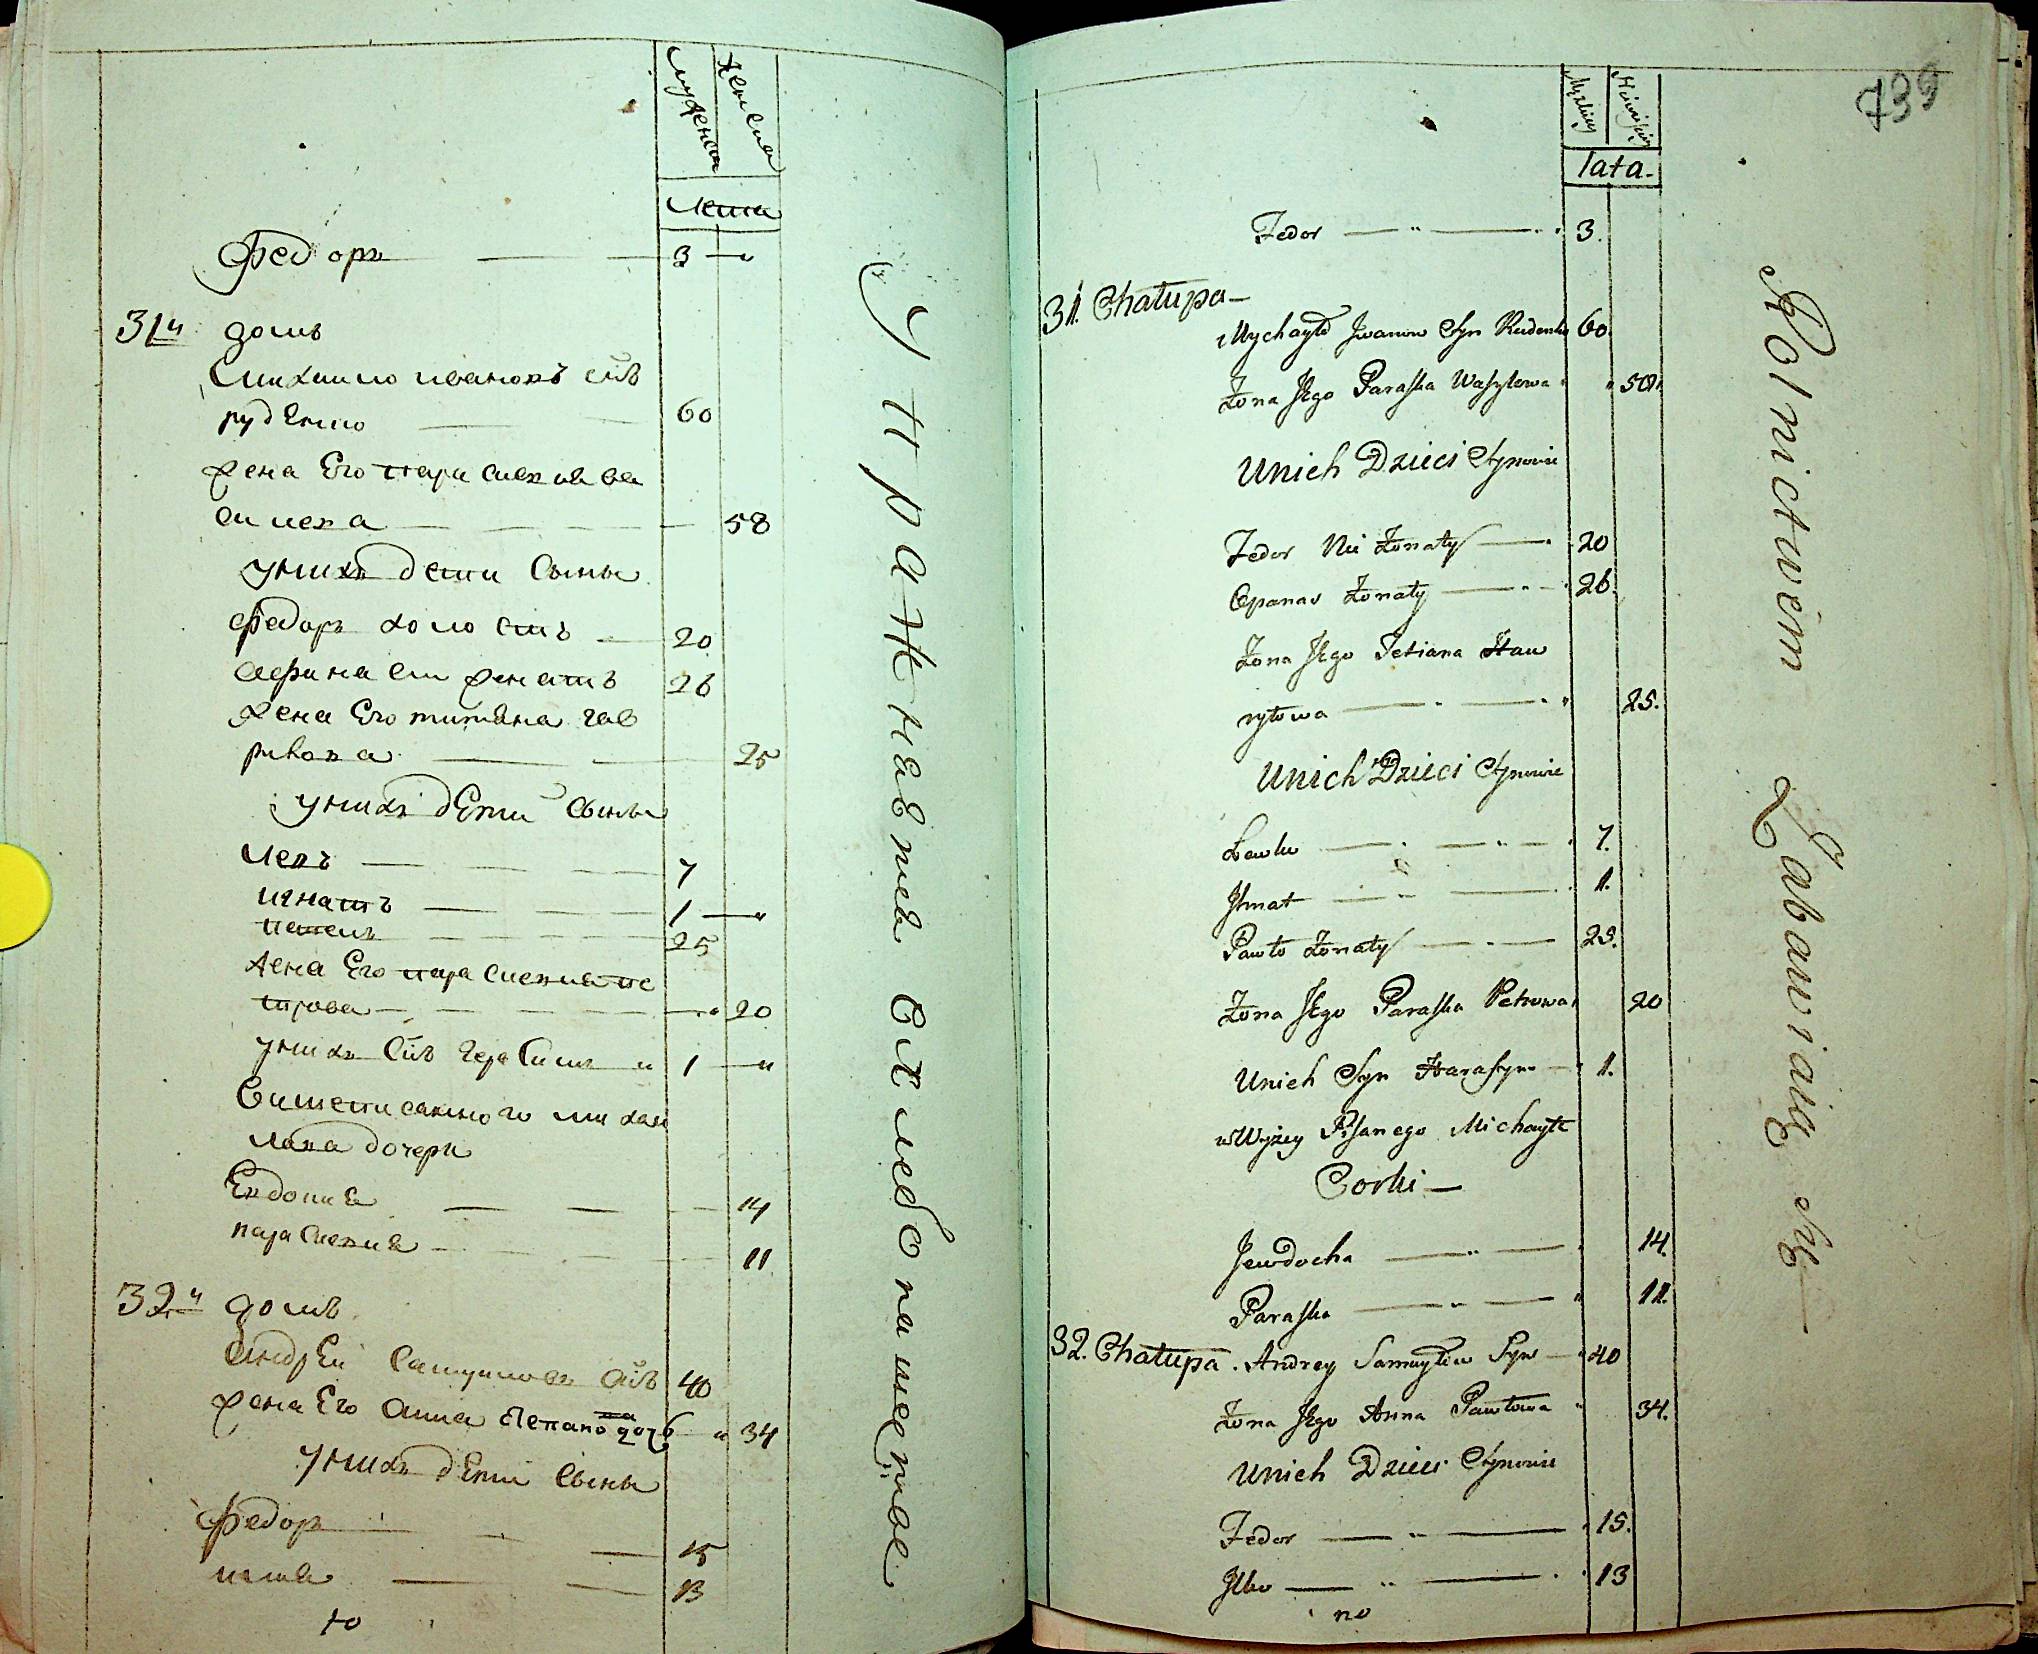 мужеска
женска
лета
Федоръ 3 —„
31й домъ
Михаило ивановъ сн҃ъ
руденко 60
жена Его параскевия ва
силева 58
у нихъ дети Сыны
Федоръ холостъ 20
афанасий женатъ 26
жена Его татияна гав
рилова 25
у нихъ дети Сыны
левъ 7
игнатъ 1 —„
павелъ 25
жена Его параскевия пе
трова —„ 20
у нихъ Сн҃ъ герасимъ „ 1 —„
Вишеписанного михаи
лова дочери
Евдокия 14
параскевия 11
32й домъ
андрей Самуилова Сн҃ъ 40
жена Его анна дочь „ 34
у нихъ дети Сыны
Федоръ 15
илия 13
Упражнаются хлебопашествое
739
Męskiey
Żeńskiey
lata.
Fedor — „ — 3.
31. Chałupa —
Mychayło Jwanow Syn Rudenko 60.
Żona Jego Paraska Wasylowa 58.
Unich Dzieci Synowie
Fedor Nie Żonaty — 20
Opanas Żonaty — 26.
Żona Jego Tetiana Haw
ryłowa — 25.
Unich Dzieci Synowie
Lewko — 7.
Jhnat — 1.
Pawło Żonaty — 25.
Żona Jego Paraska Petrowa 20
Unich Syn Harasym — 1.
wWyżey Pisanego Michayłe
Corki —
Jewdocha — 14.
Paraska — 11.
32. Chałupa. Andrey Samuyłow Syn — 40
Żona Jego Anna Pawłowa 34.
Unich Dzieci Synowie
Fedor — 15.
Jlko — 13
no
Rolnictwem Zabawiaią się —